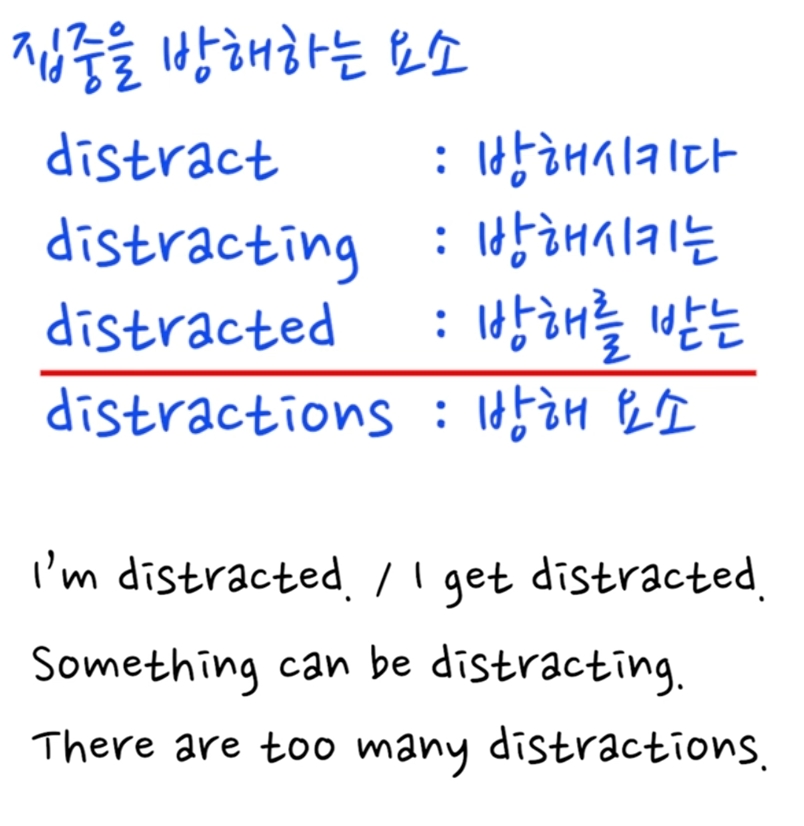 집중을 방해하는 요소
distract : 방해시키다
distracting : 방해시키는
distracted : 방해를 받는
distractions : 방해 요소
I'm distracted. / I get distracted.
Something can be distracting.
There are too many distractions.